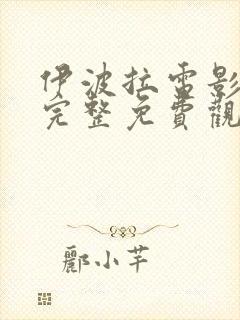 伊波拉雷影
完整免費觀
酈小芊